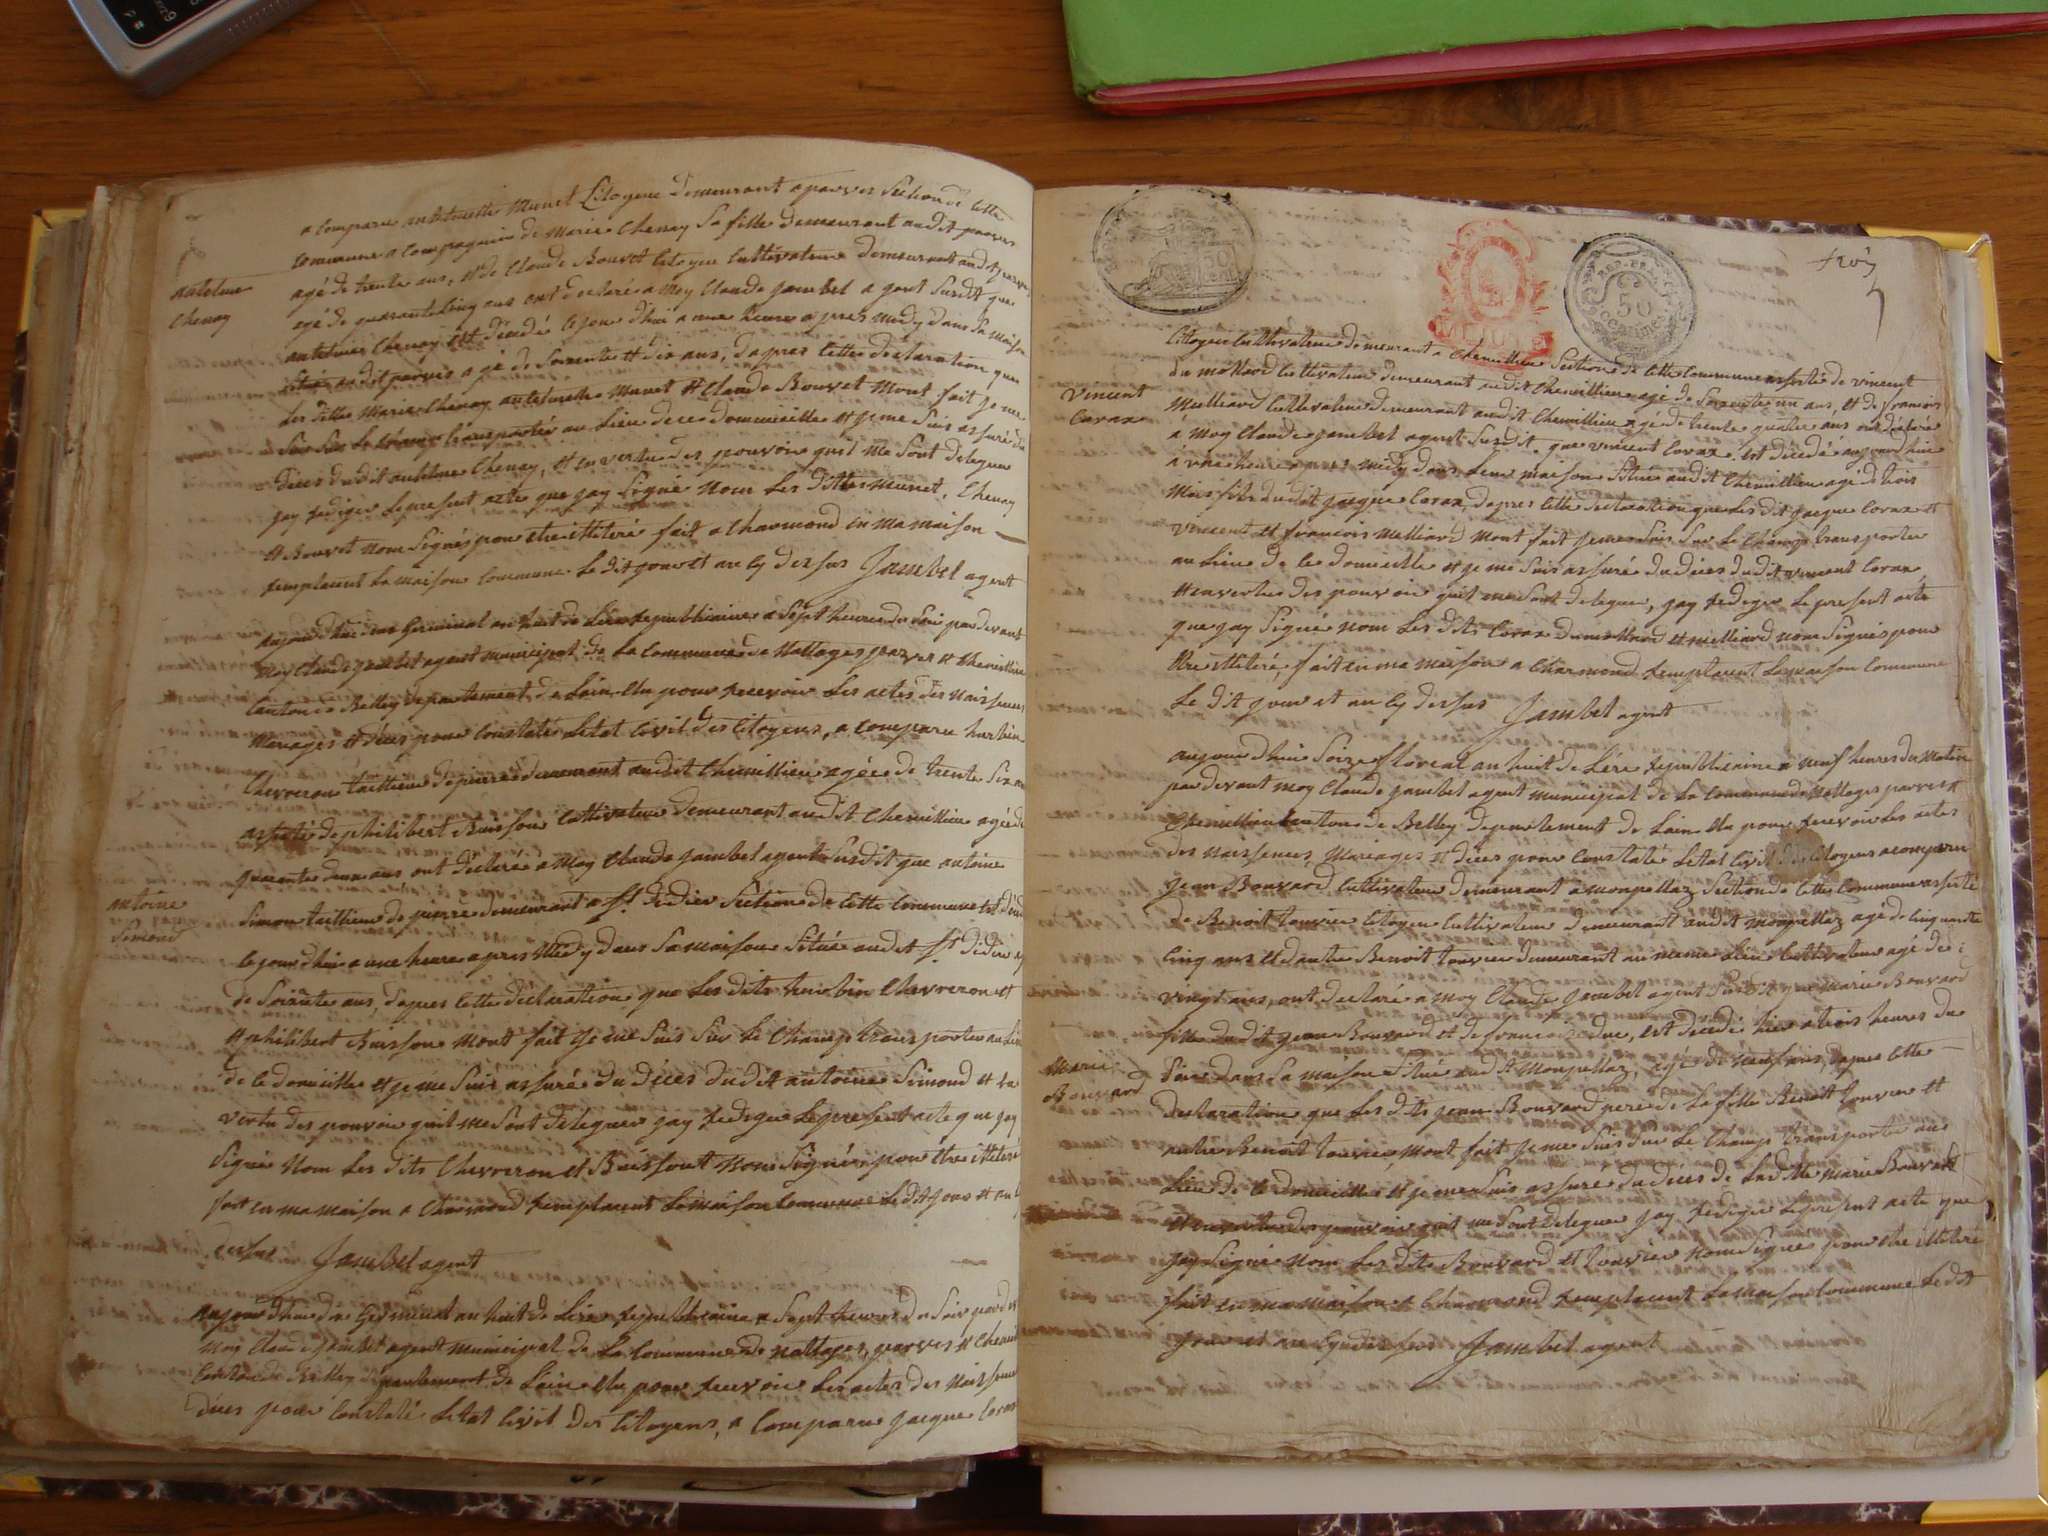 a comparu anthoinette Munet Citoyene demeurant a parves Section de cette
commune a Compagnié de Marie Chenay Sa fille demeurant audit parves
agé de trente ans, et de Claude Bouvet Citoyen Cultivateur demeurant audit parves
antelme
Chenay
agé de quarante Cinq ans ont declaré a Moy Claude Jambel agent Susdit que
antelme Chenay est décedé le jour dhui a une heure apres midy dans Sa maison
Située audit parves agé de Soixante et dix ans, dapres cette declaration que
Les dittes Marie Chenay Munet et Claude Bouvet Mont fait je me
Suis Sur le Champ transporté au Lieu de ce domicille et je me Suis assuré du
déces dudit antelme Chenay, et en vertu des pouvoir quil me Sont delegue
jay rediger le present acte que jay Signé Nom Les dittes Munet, Chenay
et Bouvet nom Signés pour etre illiteré fait a Charmond en Ma maison
remplacent La maison Commune le dit jour et an Cy dessus Jambel agent
aujourdhui Germinal an huit de Lére republicaine a Sept heures du Soir par devant
Moy Claude Jambel agent municipal de La Commune de Nattages parves et Chemillieu
Canton de Belley departement de Lain Elu pour recevoir Les actes des Naissences
Mariages et déces pour Constater Létat Civil des Citoyens, a comparu hurbin
Chevreron taillieur de pierre demeurant audit Chemillieu agée de trente Six ans
assisté de philibert Buisson Cultivateur demeurant audit Chemillieu agé de
quarente deux ans ont declaré a Moy Claude Jambel agent Susdit que antoine
antoine
Simond
Simon taillieur de pierre demeurant a St didier Séction de cette Commune est déced
le jour dhui a une heure apres Midy dans Sa maison Située audit St didier agé
de Soixante ans, dapres cette déclaration que Les dits hurbin Chevreron et
et philibert Buisson Mont fait je me Suis Sur le Champ transporter au Lieu
de ce domicille et je me Suis assuré du déces dudit antoine Simond et en
vertu des pouvoir quil me Sont deleguer jay redige le present acte que jay
Signé Nom Les dits Chevreron et Buisson Nom Signés pour etre illiteré
fait en ma maison a Charmond remplacent La maison Commune le dit jour et an Cy
dessus Jambel agent
aujourdhui Germinal an huit de Lére republicaine a Sept heures du Soir par devant
Moy Claude Jambel agent municipal de La Commune de Nattages, parves et Chemil
Canton de Belley departement de Lain Elu pour recevoir Les actes des Naissences
déces pour Constaté Letat Civil des Citoyens, a Comparu Jacque Corax
REP. FRA.
50
CENTIMES
Citoyen Cultivateur demeurant a Chemillieu Section de cette Commune assisté de vincent
Cultivateur demeurant audit Chemillieu agé de Soixante un ans, et de francois
Vincent
Corax
Melliard Cultivateur demeurant audit Chemillieu agé de trente quatre ans ont declaré
a Moy Claude Jambel agent Susdit que vincent Corax est décedé aujourdhui
a une heure apres midy dans Leur maison Située audit Chemillieu agé de trois
Mois fils dudit Jacque Corax, dapres cette declaration que Les dit Jacque Corax et
vincent et francois Melliard Mont fait je me Suis Sur Le Champ transporter
au Lieu de ce domicille et je me Suis assuré du déces dudit vincent Corax,
et en vertu des pouvoir quil me Sont deleguer, jay rediger Le present acte
que jay Signé nom Les dits Corax et Melliard nom Signés pour
Etre illiteré, fait en ma maison a Charmond remplacent La maison Commune
Le dit jour et an Cy dessus Jambel agent
aujourdhui Seize floreal an huit de Lére republicaine a neuf heures du Matin
par devant moy Claude Jambel agent municipal de La Commune de Nattages parves et
Chemillieu Canton de Belley departement de Lain Elu pour recevoir Les actes
des naissences, Mariages et déces pour Constaté Letat Civil des Citoyens a comparu
Jean Bouvard Cultivateur demeurant a monpellaz Section de cette Commune assisté
de Benoit touvier Citoyen Cultivateur demeurant audit monpellaz agé de Cinquante
Cinq ans et dautre Benoit touvier demeurant au meme Lieu Cultivateur agé de
vingt ans, ont declaré a moy Claude Jambel agent Susdit que Marie Bouvard
fille dudit Jean Bouvard et de francoise est decedé hier a trois heures du
Marie
Bouvard
Soir dans Sa maison Située audit Monpellaz, agé de neuf ans, dapres cette
declaration que Les dits Jean Bouvard pere de La fille Benoit touvier et
autre Benoit touvier, mont fait je me Suis Sur Le Champ transporté au
Lieu de ce domicille et je me Suis assuré du déces de Laditte marie Bouvard
et en vertu des pouvoir quil me Sont deleguer jay rediger Le present acte que
jay Signé nom Les dits Bouvard et touvier nom Signe pour etre illiteré
fait en ma maison a Charmond remplacent La maison Commune Le dit
Jour et an Cy dessus Jambel agent